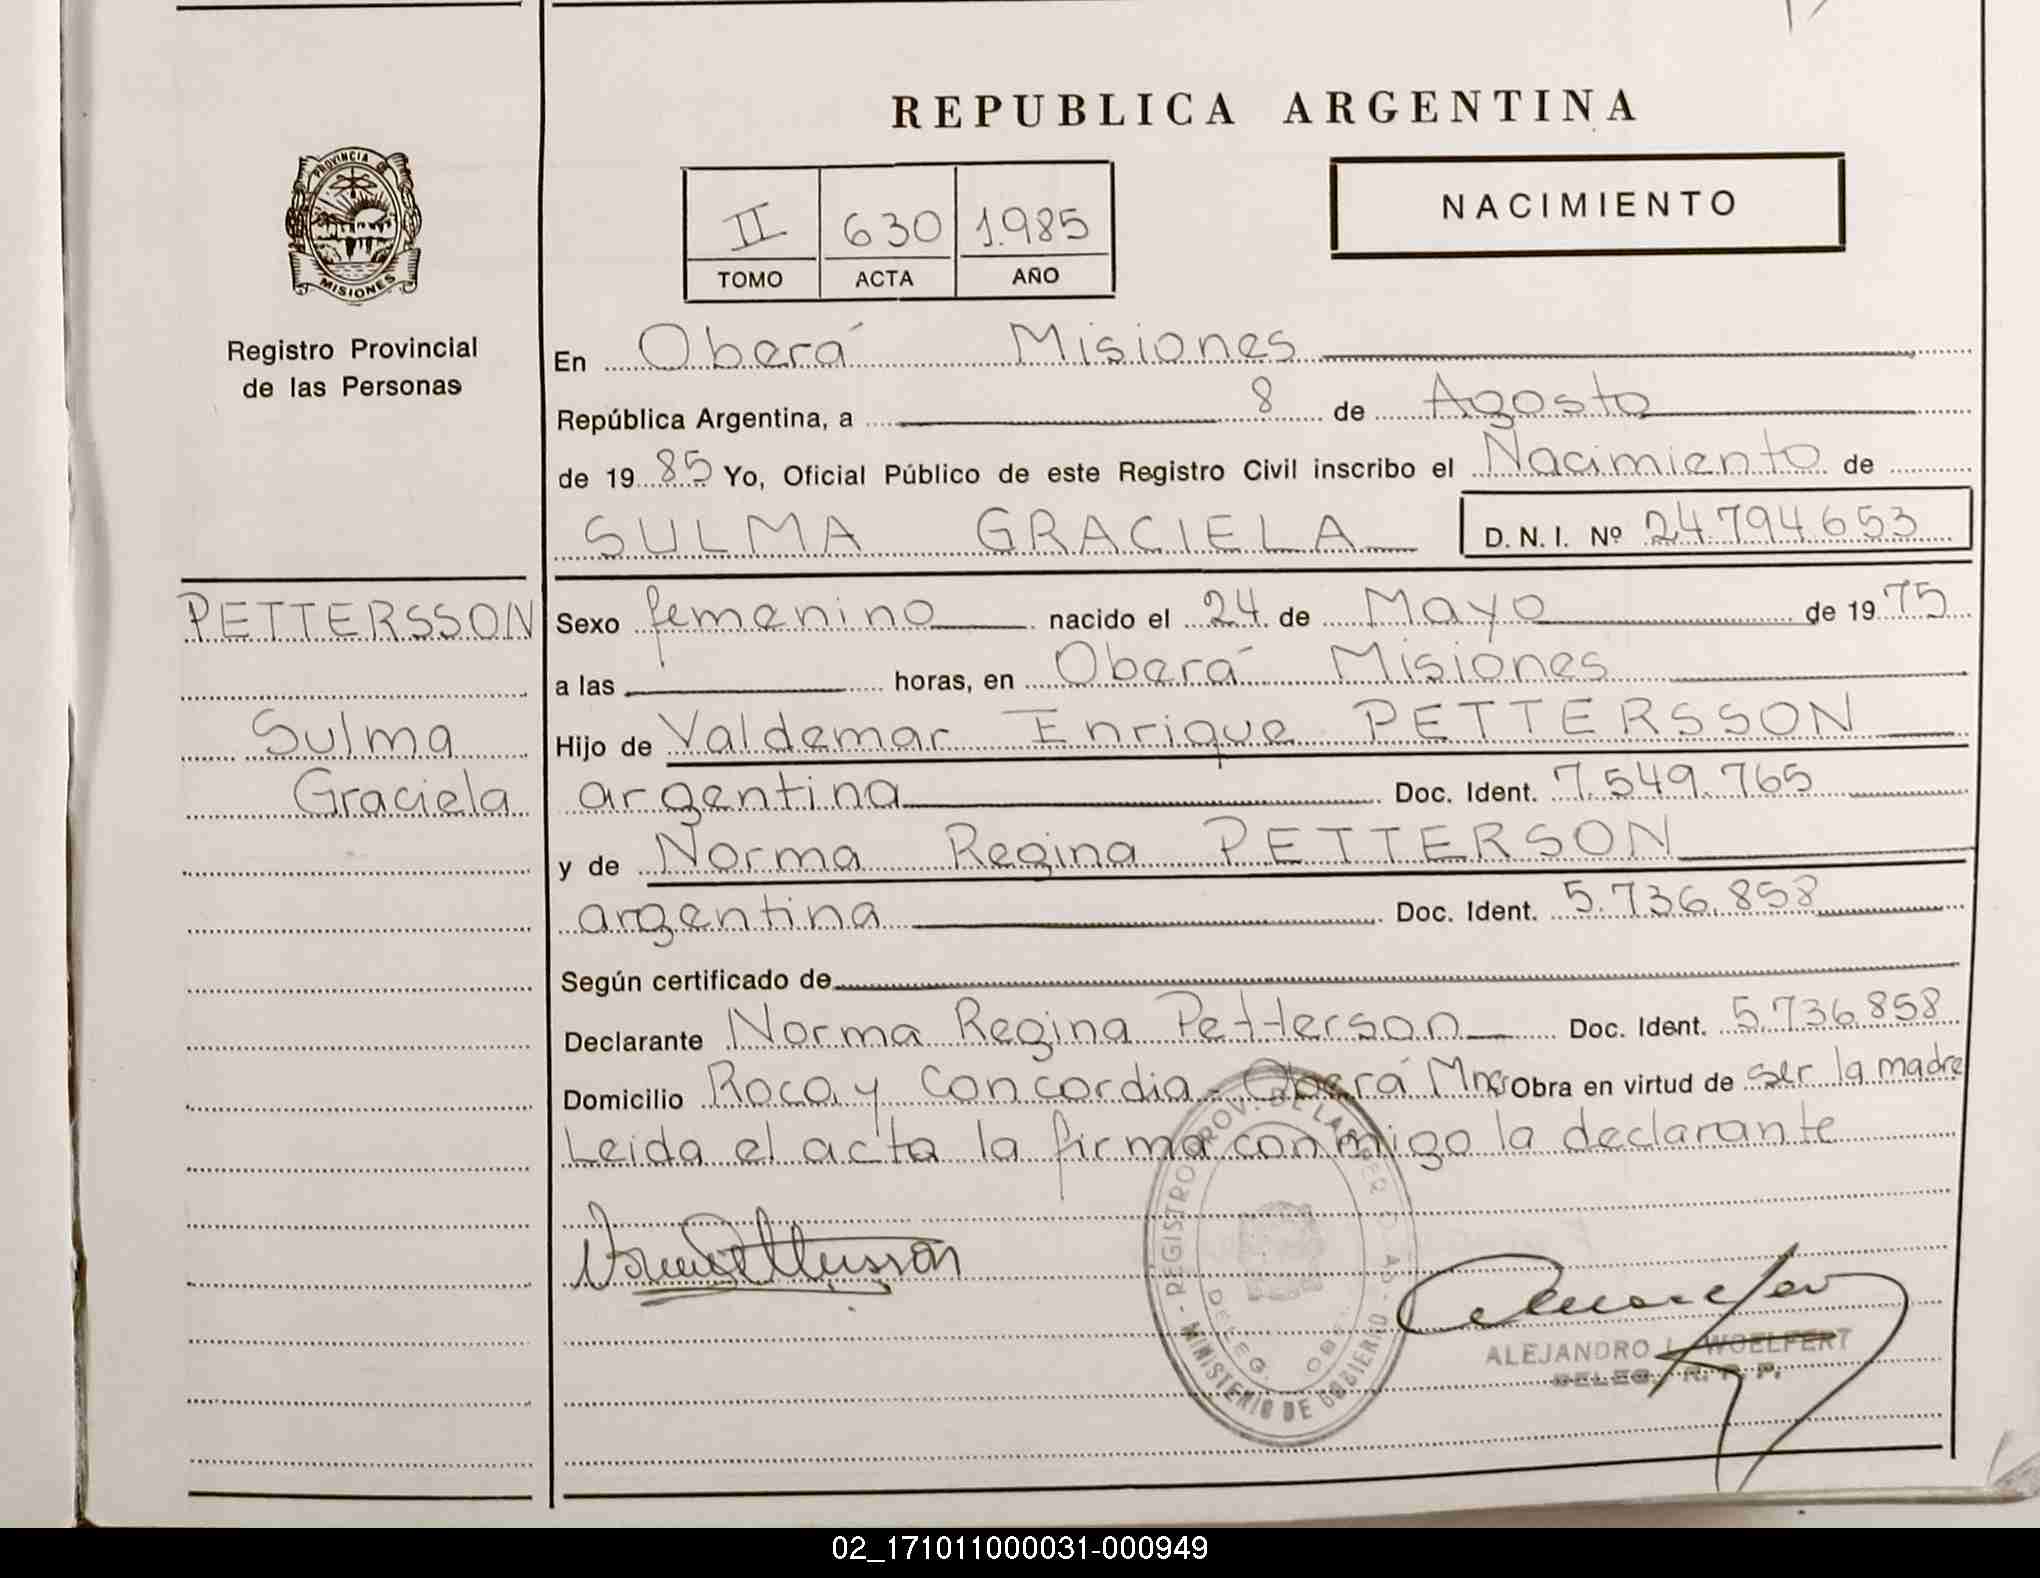 REPUBLICA ARGENTINA
PROVINCIA DE
MISIONES
Registro Provincial
de las Personas
II 630 1.985
TOMO ACTA AÑO
NACIMIENTO
En Oberá Misiones
República Argentina, a 8 de Agosto
de 1985 Yo, Oficial Público de este Registro Civil inscribo el Nacimiento de
SULMA GRACIELA D. N. I. Nº 24.794.653
PETTERSSON
Sulma
Graciela
Sexo femenino nacido el 24 de Mayo de 1975
a las horas, en Oberá Misiones
Hijo de Valdemar Enrique PETTERSSON
argentina Doc. Ident. 7.549.765
y de Norma Regina PETTERSON
argentina Doc. Ident. 5.736.858
Según certificado de
Declarante Norma Regina Petterson Doc. Ident. 5.736.858
Domicilio Roca y Concordia - Oberá Mnes Obra en virtud de ser la madre
Leida el acta la firma conmigo la declarante
REGISTRO PROV. DE LAS PER
MINISTERIO DE GOBIERNO
DELEG.
ALEJANDRO L. WOELFERT
DELEG. R. P. P.
02_171011000031-000949